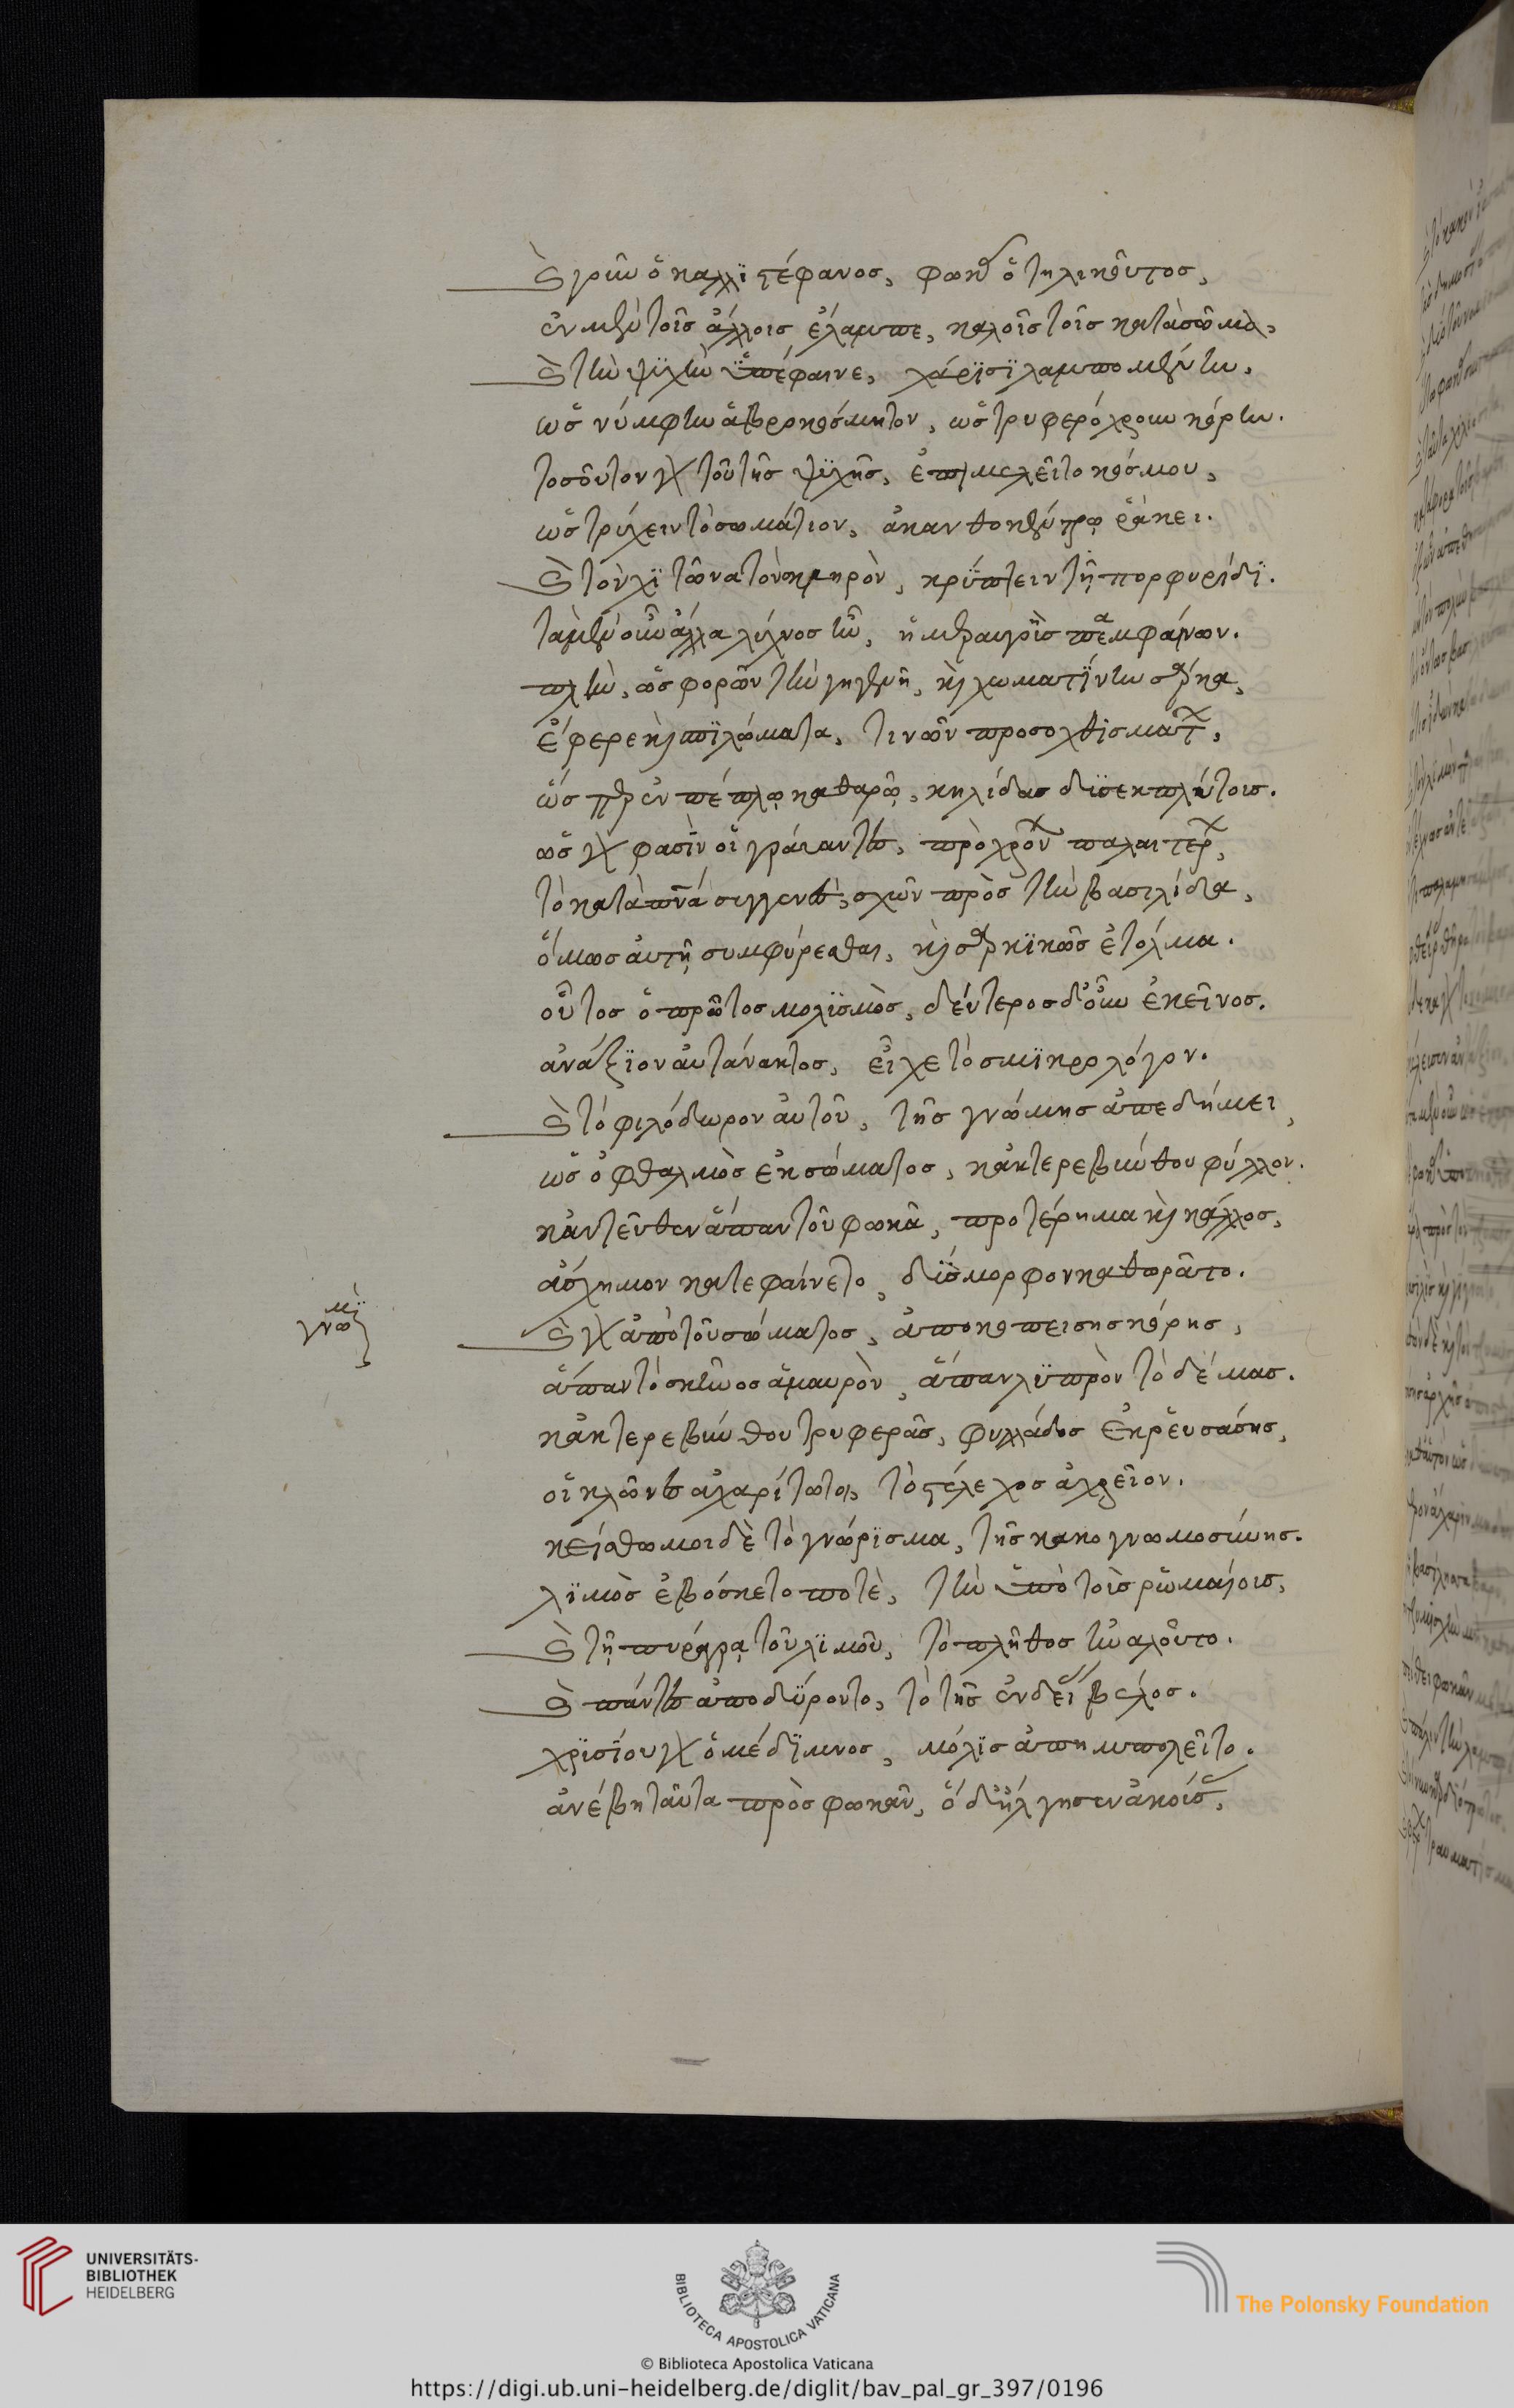 Καὶ γοῦν ὁ καλλιστέφανος, φωκᾶς ὁ τηλικοῦτος,
ἐν μὲν τοῖς ἄλλοις ἔλαμπε, καλοῖς τοῖς κατὰ σῶμα,
καὶ τὴν ψυχὴν ὑπέφαινε, χάρϊσϊ λαμπομένην,
ὡς νύμφην ἁβροκόσμητον, ὡς τρυφερόχρουν κόρην.
τοσοῦτον γὰρ τοῦ τῆς ψϋχῆς, ἐπεμελεῖτο κόσμου,
ὡς τρύχειν τὸ σωμάτιον, ἀκανθοκέντρῳ ῥάκει.
καὶ τὸν χϊτῶνα τὸν σκληρὸν, κρύπτειν τῇ πορφυρίδϊ.
τὰ μὲν οὖν ἄλλα λύχνος ἦν, ἡμεραυγὴς παμφαίνων.
πλὴν, ὡς φορῶν τὴν γηγενῆ, καὶ χωματΐνην σάρκα,
ἔφερε καὶ σπϊλώματα, τινῶν προσοχθισμάτων,
ὥσπερ ἐν πέπλῳ καθαρῷ, κηλίδας δϋσεκπλύτοις.
ὡς γὰρ φασὶν οἱ γράψαντες, πρὸ χρόνων παλαιτέρων,
τὸ κατὰ πνεῦμα συγγενὲς, σχὼν πρὸς τὴν βασιλίδα,
ὅμως αὐτῇ συμφύρεσθαι, καὶ σαρκϊκῶς ἐτόλμα.
οὗτος ὁ πρῶτος μολϋσμὸς, δεύτερος δ' οὖν ἐκεῖνος.
ἀνάξϊον αὐτάνακτος, εἶχε τὸ σμϊκρολόγον.
καὶ τὸ φιλόδωρον αὐτοῦ, τῆς γνώμης ἀπεδήμει,
ὡς ὀφθαλμὸς ἐκ σώματος, κἀκ τερεβίνθου φύλλον.
κἀντεῦθεν ἅπαν τοῦ φωκᾶ, προτέρημα καὶ κάλλος,
ἄσχημον κατεφαίνετο, δύσμορφον καθωρᾶτο.
γνώμη
καὶ γὰρ ἀπὸ τοῦ σώματος, ἀποκοπείσης κόρης,
ἅπαν τὸ σκῆνος ἀμαυρὸν, ἅπαν λϋπρὸν τὸ δέμας.
κἀκ τερεβίνθου τρυφερᾶς, φυλλάδος ἐκρευσάσης,
οἱ κλῶνες ἀχαρίτωτοι, τὸ στέλεχος ἀχρεῖον.
κείσθω μοι δὲ τὸ γνώρϊσμα, τῆς κακογνωμοσύνης.
λϊμὸς ἐβόσκετο ποτὲ, τὴν ὑπὸ τοῖς ῥωμαίοις,
καὶ τῇ πυράγρᾳ τοῦ λϊμοῦ, τὸ πλῆθος ἠναλοῦτο.
καὶ πάντες ἀπωδύροντο, τὸ τῆς ἐνδείας βέλος.
χρϋσίου γὰρ ὁ μέδϊμνος, μόλϊς ἀπημπολεῖτο.
ἀνέβη ταῦτα πρὸς φωκᾶν, ὁ δ' ἤλγησεν ἀκούσας,
UNIVERSITÄTS-
BIBLIOTHEK
HEIDELBERG
BIBLIOTECA APOSTOLICA VATICANA
The Polonsky Foundation
© Biblioteca Apostolica Vaticana
https://digi.ub.uni-heidelberg.de/diglit/bav_pal_gr_397/0196